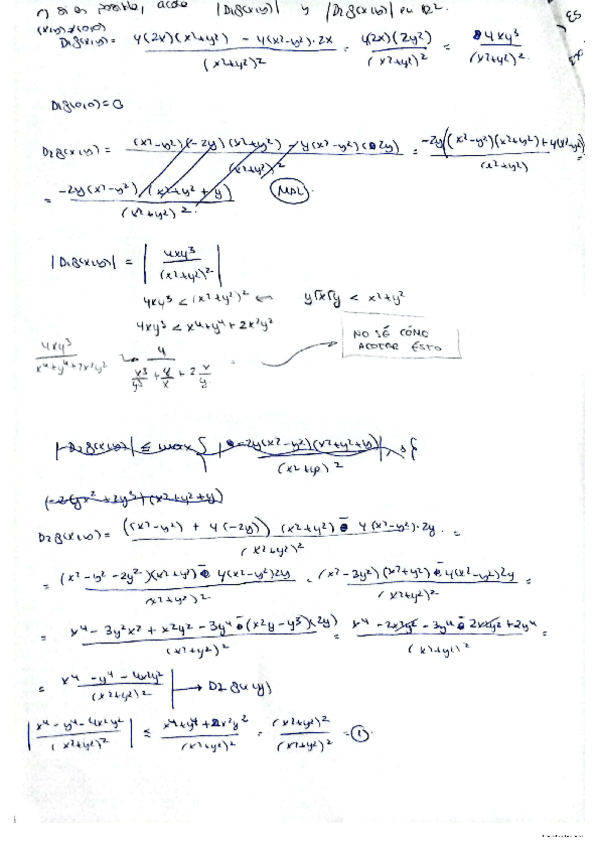 si es posible, acotar |D₁g(x,y)| y |D₂g(x,y)| en R².
(x,y)≠(0,0)
D₁g(x,y) = y(2x)(x²+y²) - y(x²-y²)·2x / (x²+y²)² = y(2x)(2y²) / (x²+y²)² = 4xy³ / (x²+y²)²
D₁g(0,0) = 0
D₂g(x,y) = (x²-y²)(-2y)(x²+y²) - y(x²-y²)(2y) / (x²+y²)² = -2y((x²-y²)(x²+y²)+y(x²-y²) / (x²+y²) =
= -2y(x²-y²)(x²+y²+y) / (x²+y²)². MAL.
|D₁g(x,y)| = | 4xy³ / (x²+y²)² |
4xy³ < (x²+y²)² ← y√x√y < x²+y²
4xy³ < x⁴+y⁴+2x²y²
4xy³ / x⁴+y⁴+2x²y² → 4 / x³/y³ + y/x + 2 x/y
NO SÉ CÓMO
ACOTAR ESTO
|D₂g(x,y)| ≤ max { | -2y(x²-y²)(x²+y²+y) / (x²+y²)² |
D₂g(x,y) = ((x²-y²) + y(-2y)) (x²+y²) - y(x²-y²)·2y / (x²+y²)² =
= (x²-y²-2y²)(x²+y²) - y(x²-y²)2y / (x²+y²)² = (x²-3y²)(x²+y²) - y(x²-y²)2y / (x²+y²)² =
= x⁴-3y²x²+x²y²-3y⁴-(x²y-y³)(2y) / (x²+y²)² = x⁴-2x²y²-3y⁴-2x²y²+2y⁴ / (x²+y²)² =
= x⁴-y⁴-4x²y² / (x²+y²)² → D₂g(x,y)
| x⁴-y⁴-4x²y² / (x²+y²)² | ≤ x⁴+y⁴+2x²y² / (x²+y²)² = (x²+y²)² / (x²+y²)² = 1